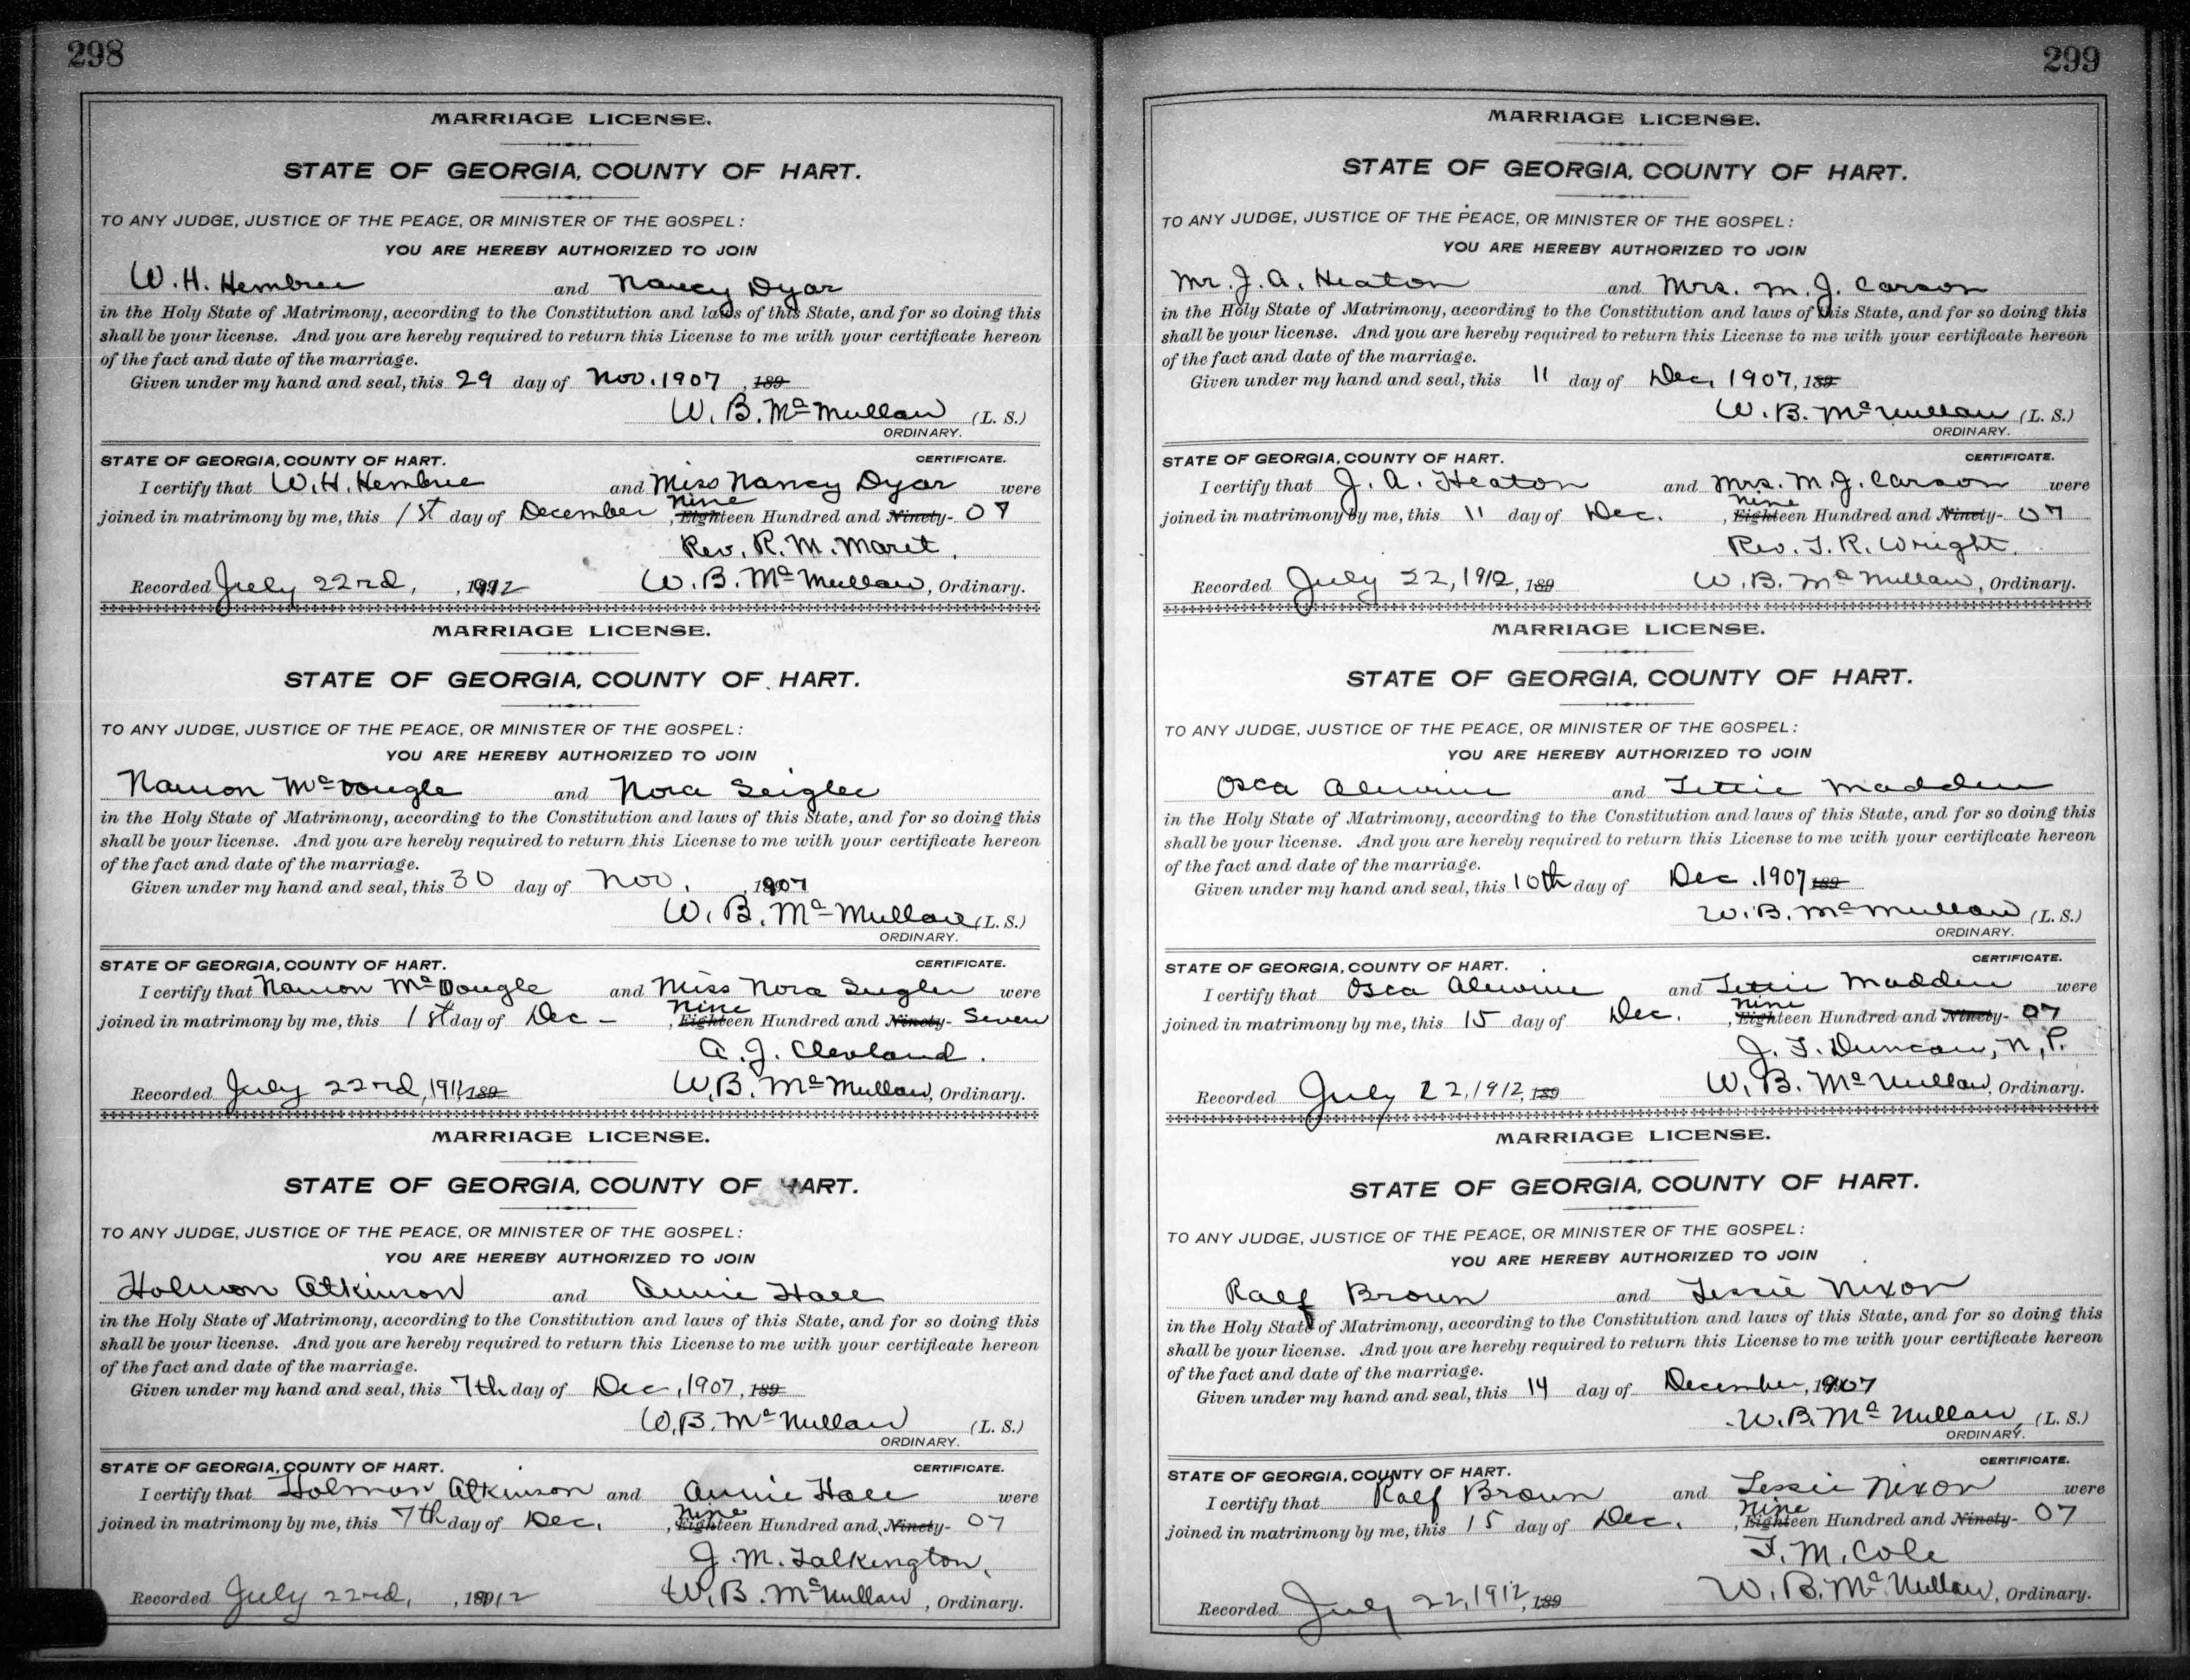 298
MARRIAGE LICENSE.
STATE OF GEORGIA, COUNTY OF HART.
TO ANY JUDGE, JUSTICE OF THE PEACE, OR MINISTER OF THE GOSPEL:
YOU ARE HEREBY AUTHORIZED TO JOIN
W. H. Hembree and Nancy Dyar
in the Holy State of Matrimony, according to the Constitution and laws of this State, and for so doing this
shall be your license. And you are hereby required to return this License to me with your certificate hereon
of the fact and date of the marriage.
Given under my hand and seal, this 29 day of Nov. 1907, 189
W. B. McMullan (L. S.)
ORDINARY.
STATE OF GEORGIA, COUNTY OF HART. CERTIFICATE.
I certify that W. H. Hembree and Miss Nancy Dyar were
joined in matrimony by me, this 1st day of December, Nine Eighteen Hundred and Ninety- 07
Rev. R. M. Maret.
Recorded July 22nd, 1912 W. B. McMullan, Ordinary.
MARRIAGE LICENSE.
STATE OF GEORGIA, COUNTY OF HART.
TO ANY JUDGE, JUSTICE OF THE PEACE, OR MINISTER OF THE GOSPEL:
YOU ARE HEREBY AUTHORIZED TO JOIN
McDougle and Nora Seigler
in the Holy State of Matrimony, according to the Constitution and laws of this State, and for so doing this
shall be your license. And you are hereby required to return this License to me with your certificate hereon
of the fact and date of the marriage.
Given under my hand and seal, this 30 day of Nov. , 1907
W. B. McMullan (L. S.)
ORDINARY.
STATE OF GEORGIA, COUNTY OF HART. CERTIFICATE.
I certify that McDougle and Miss Nora Seigler were
joined in matrimony by me, this 1st day of Dec - , Nine Eighteen Hundred and Ninety- Seven
A. J. Clevland.
Recorded July 22nd, 1912 189 W. B. McMullan, Ordinary.
MARRIAGE LICENSE.
STATE OF GEORGIA, COUNTY OF HART.
TO ANY JUDGE, JUSTICE OF THE PEACE, OR MINISTER OF THE GOSPEL:
YOU ARE HEREBY AUTHORIZED TO JOIN
Holmon Atkinson and Annie Hall
in the Holy State of Matrimony, according to the Constitution and laws of this State, and for so doing this
shall be your license. And you are hereby required to return this License to me with your certificate hereon
of the fact and date of the marriage.
Given under my hand and seal, this 7th day of Dec, 1907, 189
W. B. McMullan (L. S.)
ORDINARY.
STATE OF GEORGIA, COUNTY OF HART. CERTIFICATE.
I certify that Holmon Atkinson and Annie Hall were
joined in matrimony by me, this 7th day of Dec. , Nine Eighteen Hundred and Ninety- 07
J. M. Talkington,
Recorded July 22nd, , 1912 W. B. McMullan, Ordinary.
299
MARRIAGE LICENSE.
STATE OF GEORGIA, COUNTY OF HART.
TO ANY JUDGE, JUSTICE OF THE PEACE, OR MINISTER OF THE GOSPEL:
YOU ARE HEREBY AUTHORIZED TO JOIN
Mr. J. A. Heaton and Mrs. M. J. Carson
in the Holy State of Matrimony, according to the Constitution and laws of this State, and for so doing this
shall be your license. And you are hereby required to return this License to me with your certificate hereon
of the fact and date of the marriage.
Given under my hand and seal, this 11 day of Dec, 1907, 189
W. B. McMullan (L. S.)
ORDINARY.
STATE OF GEORGIA, COUNTY OF HART. CERTIFICATE.
I certify that J. A. Heaton and Mrs. M. J. Carson were
joined in matrimony by me, this 11 day of Dec. , Nine Eighteen Hundred and Ninety- 07
Rev. T. R. Wright.
Recorded July 22, 1912, 189 W. B. McMullan, Ordinary.
MARRIAGE LICENSE.
STATE OF GEORGIA, COUNTY OF HART.
TO ANY JUDGE, JUSTICE OF THE PEACE, OR MINISTER OF THE GOSPEL:
YOU ARE HEREBY AUTHORIZED TO JOIN
Osca Alewine and Madden
in the Holy State of Matrimony, according to the Constitution and laws of this State, and for so doing this
shall be your license. And you are hereby required to return this License to me with your certificate hereon
of the fact and date of the marriage.
Given under my hand and seal, this 10th day of Dec. 1907 189
W. B. McMullan (L. S.)
ORDINARY.
STATE OF GEORGIA, COUNTY OF HART. CERTIFICATE.
I certify that Osca Alewine and Madden were
joined in matrimony by me, this 15 day of Dec. , Nine Eighteen Hundred and Ninety- 07
J. T. Duncan, N. P.
Recorded July 22, 1912, 189 W. B. McMullan, Ordinary.
MARRIAGE LICENSE.
STATE OF GEORGIA, COUNTY OF HART.
TO ANY JUDGE, JUSTICE OF THE PEACE, OR MINISTER OF THE GOSPEL:
YOU ARE HEREBY AUTHORIZED TO JOIN
Ralf Brown and Nixon
in the Holy State of Matrimony, according to the Constitution and laws of this State, and for so doing this
shall be your license. And you are hereby required to return this License to me with your certificate hereon
of the fact and date of the marriage.
Given under my hand and seal, this 14 day of December, 1907
W. B. McMullan, (L. S.)
ORDINARY.
STATE OF GEORGIA, COUNTY OF HART. CERTIFICATE.
I certify that Ralf Brown and Nixon were
joined in matrimony by me, this 15 day of Dec. , Nine Eighteen Hundred and Ninety- 07
T. M. Cole
Recorded July 22, 1912, 189 W. B. McMullan, Ordinary.